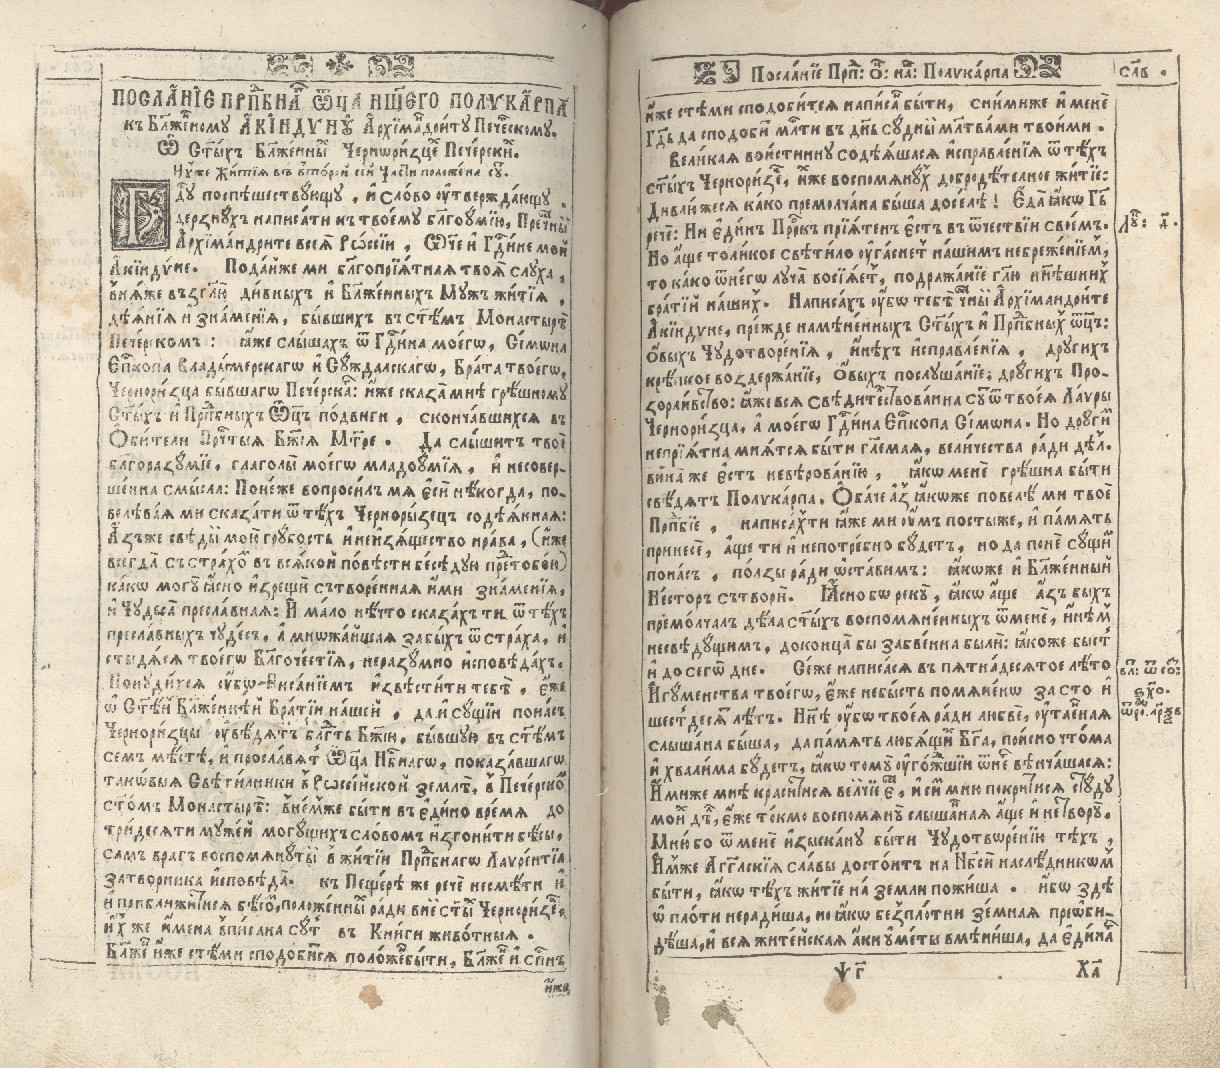 ПОСЛА́НЇЕ ПРПⷣБНАⷢ ѾЦА НШ҃ЕГО ПОЛУКА́РПА
къ Бл҃же́нному А҆КІ́НДѴНꙊ А҆рхїмандри́ту Пече́рскому.
Ѿ Ст҃ы́хъ Бл҃же́нныⷯ Чернори́зцеⷯ Пече́рскиⷯ.
И҆́хже Житїѧ̀ въ второ́й се́й Ча́сти положе́на сꙋ́ⷮ.
Гдⷭ҇ꙋ поспѣшествꙋ́ющꙋ , и҆ сло́во ᲂу҆твержда́ющꙋ .
дерзнꙋ́хъ написа́ти къ твоемꙋ̀ бл҃гоꙋ́мїю, Пречⷭ҇тны́й
А҆рхїма́ндрите всеѧ̀ Рѡссі́и , Ѿ́че и҆ Гдⷭ҇и́не мо́й
А҆кїѵ́ндѵне. Пода́йже ми бл҃гопрїѧ́тнаѧ твоѧ̑ слꙋ́ха ,
в̾нѧ́же възгл҃ю ди́вныхъ и҆ Бл҃же́нныхъ Мꙋ́жъ житїѧ̀ ,
дѣѧ́нїѧ и҆ зна́менїѧ, бы́вшихъ въ ст҃ѣмъ Монастырѣ̀
Пече́рскомъ : ꙗ҆̀же слы́шахъ ѿ Гдⷭ҇и́на моегѡ̀, Сі́мѡна
Е҆пⷭ҇копа Влади́мерскагѡ и҆ Сꙋ́ждалскагѡ, Бра́та твоегѡ̀,
Чернори́зца бы́вшагѡ Пече́рскаⷢ: и҆́же сказа̀ мнѣ̀ грѣ́шномꙋ
Ст҃ы́хъ и҆ Прпⷣбныхъ Ѿ́цъ по́двиги , сконча́вшихсѧ въ
Ѻ҆би́тели Прчⷭ҇тыѧ Бж҃їѧ Мт҃ре . Да слы́шитъ твоѐ
бл҃горазꙋ́мїе, глаго́лы моегѡ̀ младоꙋ́мїѧ , и҆ несовер-
ше́нна смы́сла: Поне́же вопроси́лъ мѧ є҆сѝ нѣ́когда, по-
велѣва́ѧ ми сказа́ти ѿ тѣ́хъ Черноры́зецъ содѣ́ѧннаѧ:
А҆́зъже свѣ́дый мою̀ грꙋ́бость и҆ неизѧ́щество нра́ва, (и҆́же
всегда̀ съ стра́хоⷨ въ всѧ́кой по́вѣсти бесѣ́дꙋю пре́ⷣ тобо́ю)
ка́кѡ могꙋ̀ ꙗ҆́сно и҆зрещѝ сътворе́ннаѧ и҆́ми зна́менїѧ,
и҆ Чꙋдеса̀ пресла́внаѧ: И҆ ма́ло нѣ́что сказа́хъ ти ѿ тѣ́хъ
пресла́вныхъ чꙋде́съ, а҆ мнѡжа́йшаѧ забы́хъ ѿ стра́ха, и҆
стыдѧ́сѧ твоегѡ̀ Бл҃гоче́стїѧ, неразꙋ́мно и҆сповѣ́дахъ.
Понꙋди́хсѧ ᲂу҆́бѡ Писа́нїемъ и҆звѣсти́ти тебѣ̀ , є҆́же
ѡ҆ Ст҃ѣ́й Бл҃же́ннѣй Бра́тїи на́шей , да и҆ сꙋ́щїи по на́съ
Черноры́зцы ᲂу҆вѣ́дѧтъ бл҃года́ть Бж҃їю, бы́вшꙋю въ ст҃ѣмъ
се́мъ мѣ́стѣ, и҆ просла́вѧтъ Ѿ́ца Нбⷭ҇наго, показа́вшагѡ
такѡвы́ѧ Свѣти́лники в̾ Рѡссі́йской землѣ̀, в̾ Пече́рскоⷨ
ст҃о́мъ Монастырѣ̀: в̾не́мже бы́ти въ є҆ди́но вре́мѧ до
три́десѧти мꙋже́й могꙋ́щихъ сло́вомъ и҆згони́ти бѣ́сы,
са́мъ вра́гъ воспомѧнꙋ́тый в̾ житїѝ Прпⷣбнагѡ Лавре́нтїѧ
затво́рника и҆сповѣ́да. къ Пеще́рѣ же речѐ не смѣ́ти и҆
и҆ прибли́житисѧ бѣсо́ⷨ, положе́нныⷯ ра́ди в̾не́й ст҃ы́ⷯ Черноры́зеⷰ,
и҆́хже и҆мена̀ в̾пи́сана сꙋ́ть въ Кни́ги живо́тныѧ .
Бл҃же́нъ и҆́же съ тѣ́ми сподо́бисѧ поло́женъ бы́ти, Бл҃же́нъ и҆ сп҃се́нъ
и҆́же
Посла́нїе Прпⷣ: Ѻ҆ц҃: на́ш: Полука́рпа
сл҃в .
и҆́же съ тѣ́ми сподо́битсѧ напи́санъ бы́ти, сни́миже и҆ менѐ
Гдⷭ҇ь да сподо́битъ млⷭ҇ти въ дн҃ь сꙋ́дный мл҃твами твои́ми .
Вели́каѧ вои́стиннꙋ содѣ́ѧшасѧ и҆справле́нїѧ ѿ тѣ́хъ
ст҃ы́хъ Черноризе́цъ, и҆́же воспомѧнꙋ́хъ добродѣ́телное житїѐ:
Дивлю́жесѧ ка́ко премолча́на бы́ша досе́лѣ! Е҆да̀ ꙗ҆́кѡ Гдⷭ҇ь
речѐ: Ни є҆ди́нъ Прⷪ҇ро́къ прїѧ́тенъ є҆́сть въ ѿче́ствїи свое́мъ.
Лꙋ́к: д҃.
Но а҆́ще толи́кое свѣти́ло ᲂу҆гаснетъ на́шимъ небреже́нїемъ,
то ка́ко ѿнегѡ̀ лꙋча̀ восїѧ́етъ, подража́нїе гл҃ю нн҃ѣшнихъ
бра́тїй на́шиⷯ. Написа́хъ ᲂу҆́бѡ тебѣ̀ чⷭ҇тны́й А҆рхїмандри́те
А҆кїѵ́ндѵне, пре́жде намѣне́нныхъ Ст҃ы́хъ и҆ Прпⷣбныхъ ѿ́цъ:
ѻ҆́выхъ Чꙋдотворе́нїѧ , и҆нѣ́хъ и҆справле́нїѧ , дрꙋги́хъ
крѣ́пкое воздержа́нїе, ѻ҆́выхъ послꙋша́нїе; дрꙋги́хъ Про-
зорли́вство: ꙗ҆́же всѧ̀ свѣди́телствованна сꙋ́ть ѿ твоеѧ̀ Ла́ѵры
Черноры́зца, а҆ моегѡ̀ Гдⷭ҇и́на Е҆пⷭ҇копа Сі́мѡна. Но дрꙋги́мъ
непрїѧ́тна мнѧ́тсѧ бы́ти гл҃емаѧ, вели́чества ра́ди дѣ́лъ.
вина́ же є҆́сть невѣ́рованїю , ꙗ҆́кѡ менѐ грѣ́шна бы́ти
свѣ́дѧтъ Полука́рпа. Ѻ҆ба́че а҆́зъ ꙗ҆́коже повелѣ́ ми твоѐ
Прпⷣбїе , написа́хъти ꙗ҆́же ми ᲂу҆́мъ пости́же, и҆ па́мѧть
принесѐ, а҆́ще ти и҆ непотре́бно бꙋ́детъ, но да понѐ сꙋ́щиⷨ
по на́съ , по́лзы ра́ди ѡ҆ста́вимъ : ꙗ҆́коже и҆ Бл҃же́нный
Не́сторъ сътворѝ. Ꙗ҆́сно бѡ рекꙋ̀ , ꙗ҆́кѡ а҆́ще а҆́зъ бы́хъ
премолча́лъ дѣла̀ ст҃ы́хъ воспомѧне́нныхъ ѿ менѐ, и҆ нѣ́мъ
несвѣ́дꙋщимъ, доконца̀ бы забве́нна бы́ли: ꙗ҆́коже бы́сть
и҆ до сегѡ̀ дне. Се́же написа́сѧ въ пѧтна́десѧтое лѣ́то
И҆гꙋ́менства твоегѡ̀, є҆́же небы́сть помѧне́нѡ за сто̀ и҆
шестьдесѧ́тъ лѣ́тъ. Нн҃ѣ ᲂу҆́бѡ твоеѧ̀ ра́ди любвѐ, ᲂу҆тае́ннаѧ
слы́шана бы́ша, да па́мѧть лю́бѧщиⷯ Бг҃а, при́сно чтома
и҆ хвали́ма бꙋ́детъ, ꙗ҆́кѡ томꙋ̀ ᲂу҆гожⷣшїи ѿне́гѡ вѣнча́шасѧ:
Мни́ бо ѿ менѐ и҆зы́сканꙋ бы́ти Чꙋдотвѡре́нїю тѣ́хъ ,
И҆́мже А҆гг҃лскїѧ сла́вы досто́итъ на Нб҃сѝ наслѣ́дникѡмъ
бы́ти, ꙗ҆́кѡ тѣ́хъ житїѐ на землѝ пожи́ша . и҆́бѡ здѣ̀
ѡ҆ пло́ти неради́ша, но ꙗ҆́кѡ безпло́тни земна́ѧ преѡби-
дѣ́ша, и҆ всѧ̀ жите́йскаѧ а҆́ки ᲂу҆ме́ты вмѣни́ша, да є҆ди́наго
Ѱг҃
Хаⷭ҇